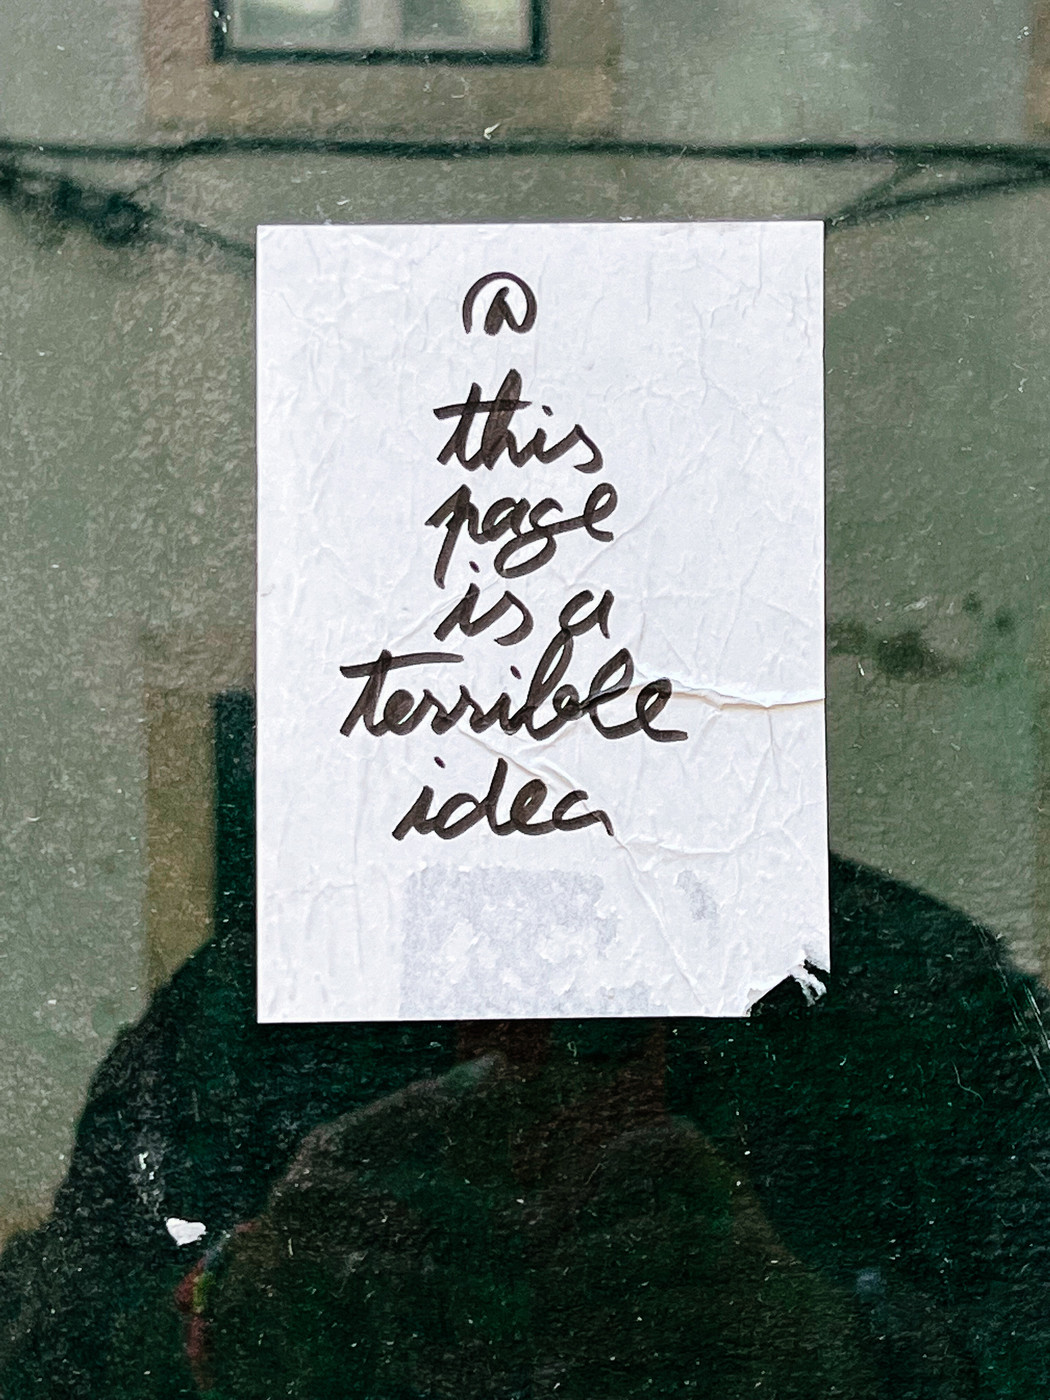 @
this
page
is a
terrible
idea